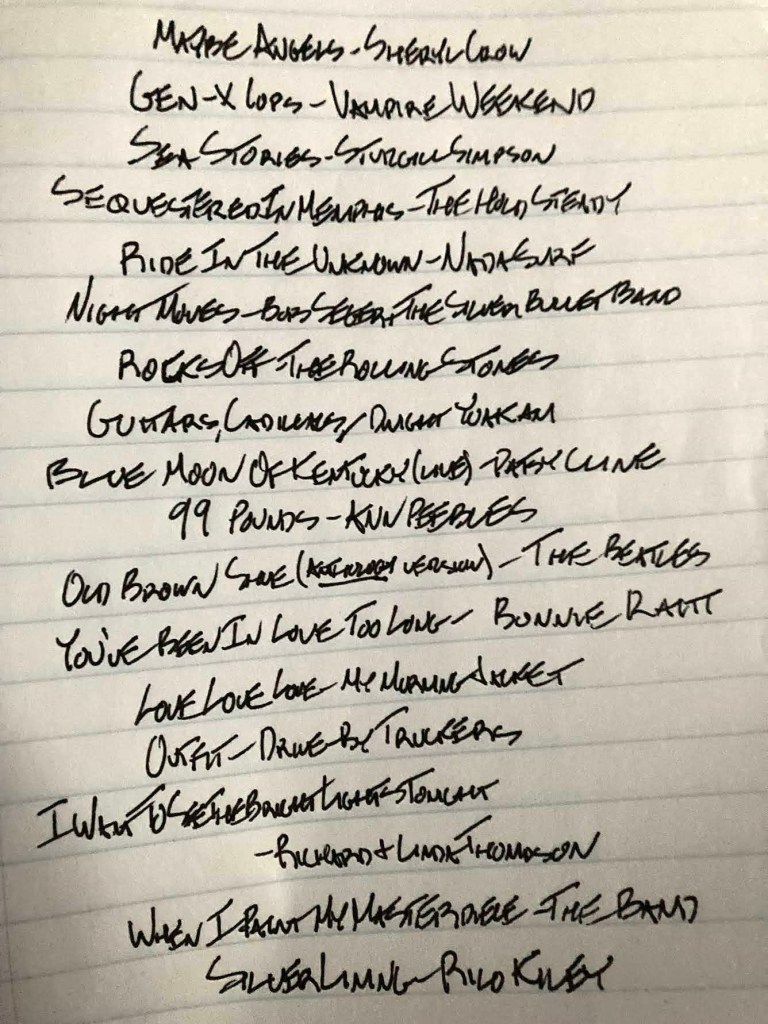 MAYBE ANGELS - SHERYL CROW
GEN-X COPS - VAMPIRE WEEKEND
SEA STORIES - STURGILL SIMPSON
SEQUESTERED IN MEMPHIS - THE HOLD STEADY
RIDE IN THE UNKNOWN - NADA SURF
NIGHT MOVES - BOB SEGER + THE SILVER BULLET BAND
ROCKS OFF - THE ROLLING STONES
GUITARS, CADILLACS / DWIGHT YOAKAM
BLUE MOON OF KENTUCKY (LIVE) - PATSY CLINE
99 POUNDS - ANN PEEBLES
OLD BROWN SHOE (ANTHOLOGY VERSION) - THE BEATLES
YOU'VE BEEN IN LOVE TOO LONG - BONNIE RAITT
LOVE LOVE LOVE - MY MORNING JACKET
OUTFIT - DRIVE-BY TRUCKERS
I WANT TO SEE THE BRIGHT LIGHTS TONIGHT
- RICHARD + LINDA THOMPSON
WHEN I PAINT MY MASTERPIECE - THE BAND
SILVER LINING - RILO KILEY